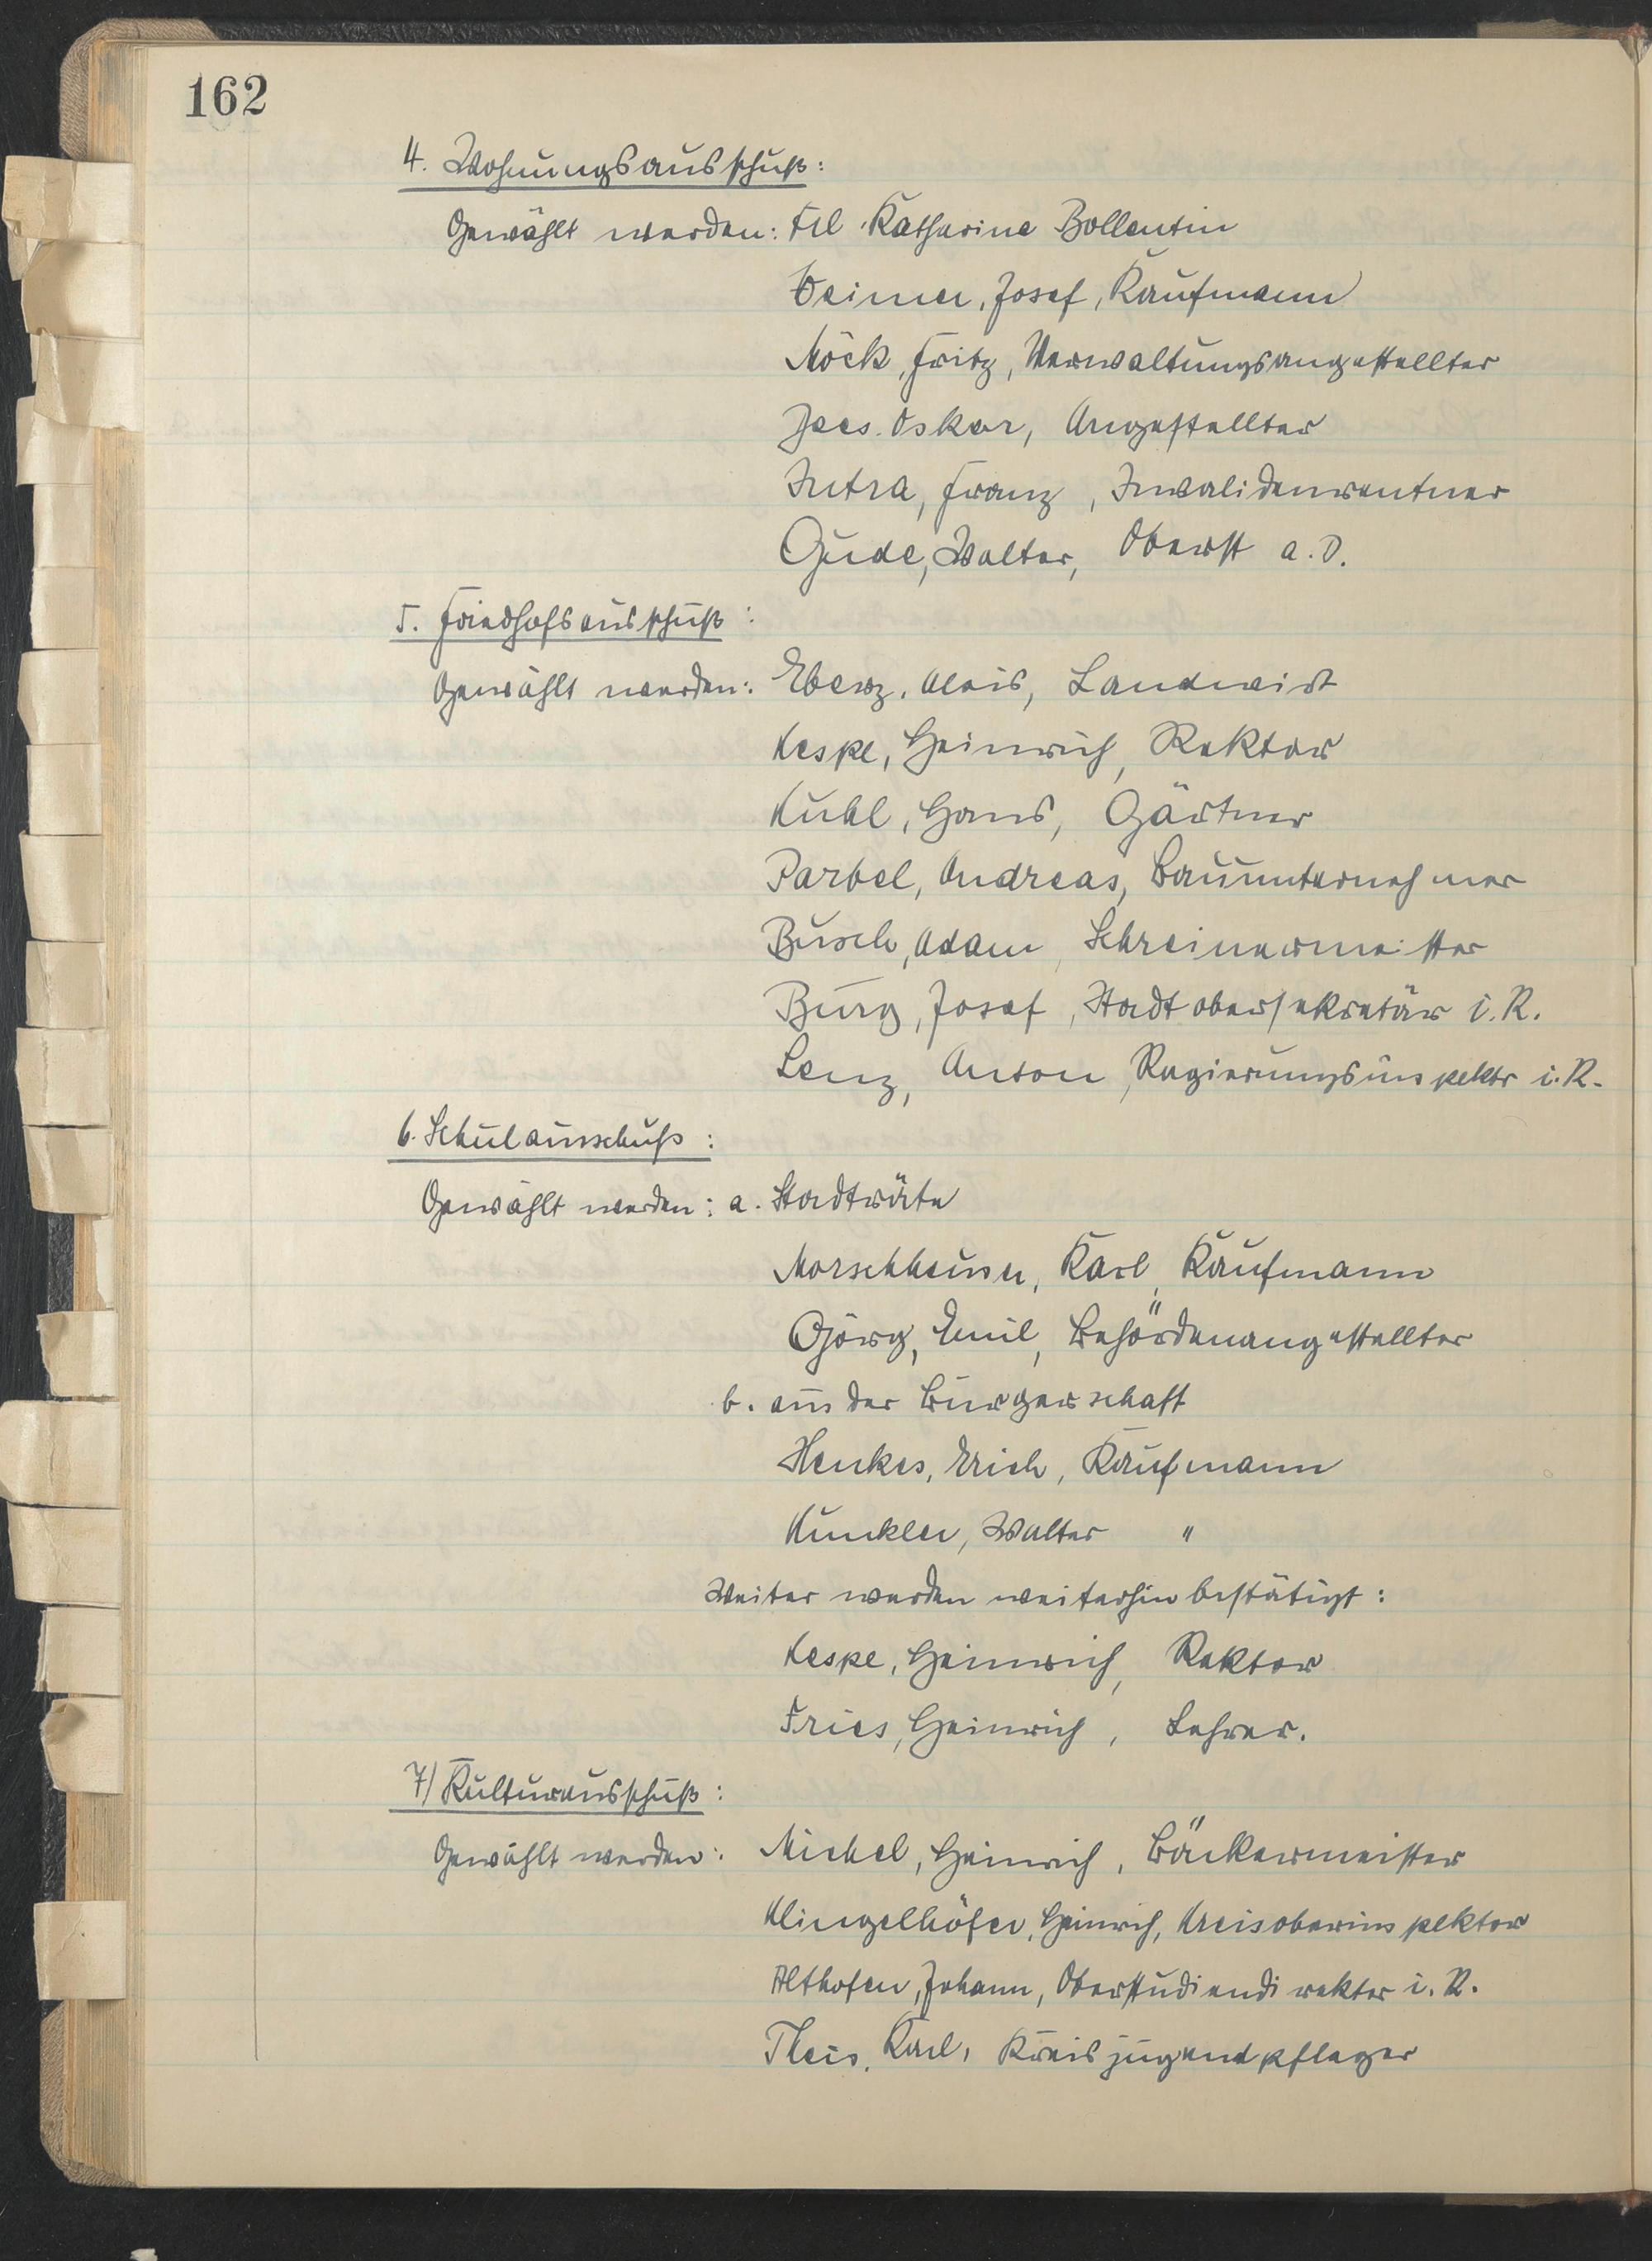 162
4. Wohnungsausschuß:
Gewählt werden: Frl. Katharine Bollentin
Weimer, Josef, Kaufmann
Möck, Fritz, Verwaltungsangestellter
Oskar, Angestellter
Intra, Franz, Invalidenrentner
Gude, Walter, Oberst a.D.
5. Friedhofsausschuß:
Gewählt werden: Eberz, Alois, Landwirt
Kespe, Heinrich, Rektor
Kuhl, Hans, Gärtner
Parbel, Andreas, Bauunternehmer
Busch, Adam, Schreinermeister
Burg, Josef, Stadtobersekretär i.R.
Lenz, Anton, Regierungsinspektr i.R.
6. Schulausschuß:
Gewählt werden: a. Stadträte
Morschheuser, Karl, Kaufmann
Görg, Emil, Behördenangestellter
b. aus der Bürgerschaft
Henkes, Erich, Kaufmann
Kunkler, Walter "
Weiter werden weiterhin bestätigt:
Kespe, Heinrich, Rektor
Fries, Heinrich, Lehrer.
7) Kulturausschuß:
Gewählt werden: Michel, Heinrich, Bäckermeister
Klingelhöfer, Heinrich, Kreisoberinspektor
Althofen, Johann, Oberstudiendirektor i.R.
Theis, Karl, Kreisjugendpfleger